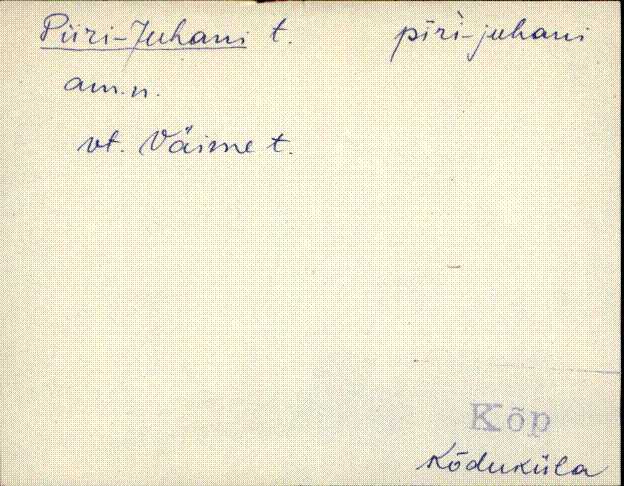 Piiri-Juhani t. pīri-juhani
am.n.
vt. Väime t.
Kõp
Kõduküla